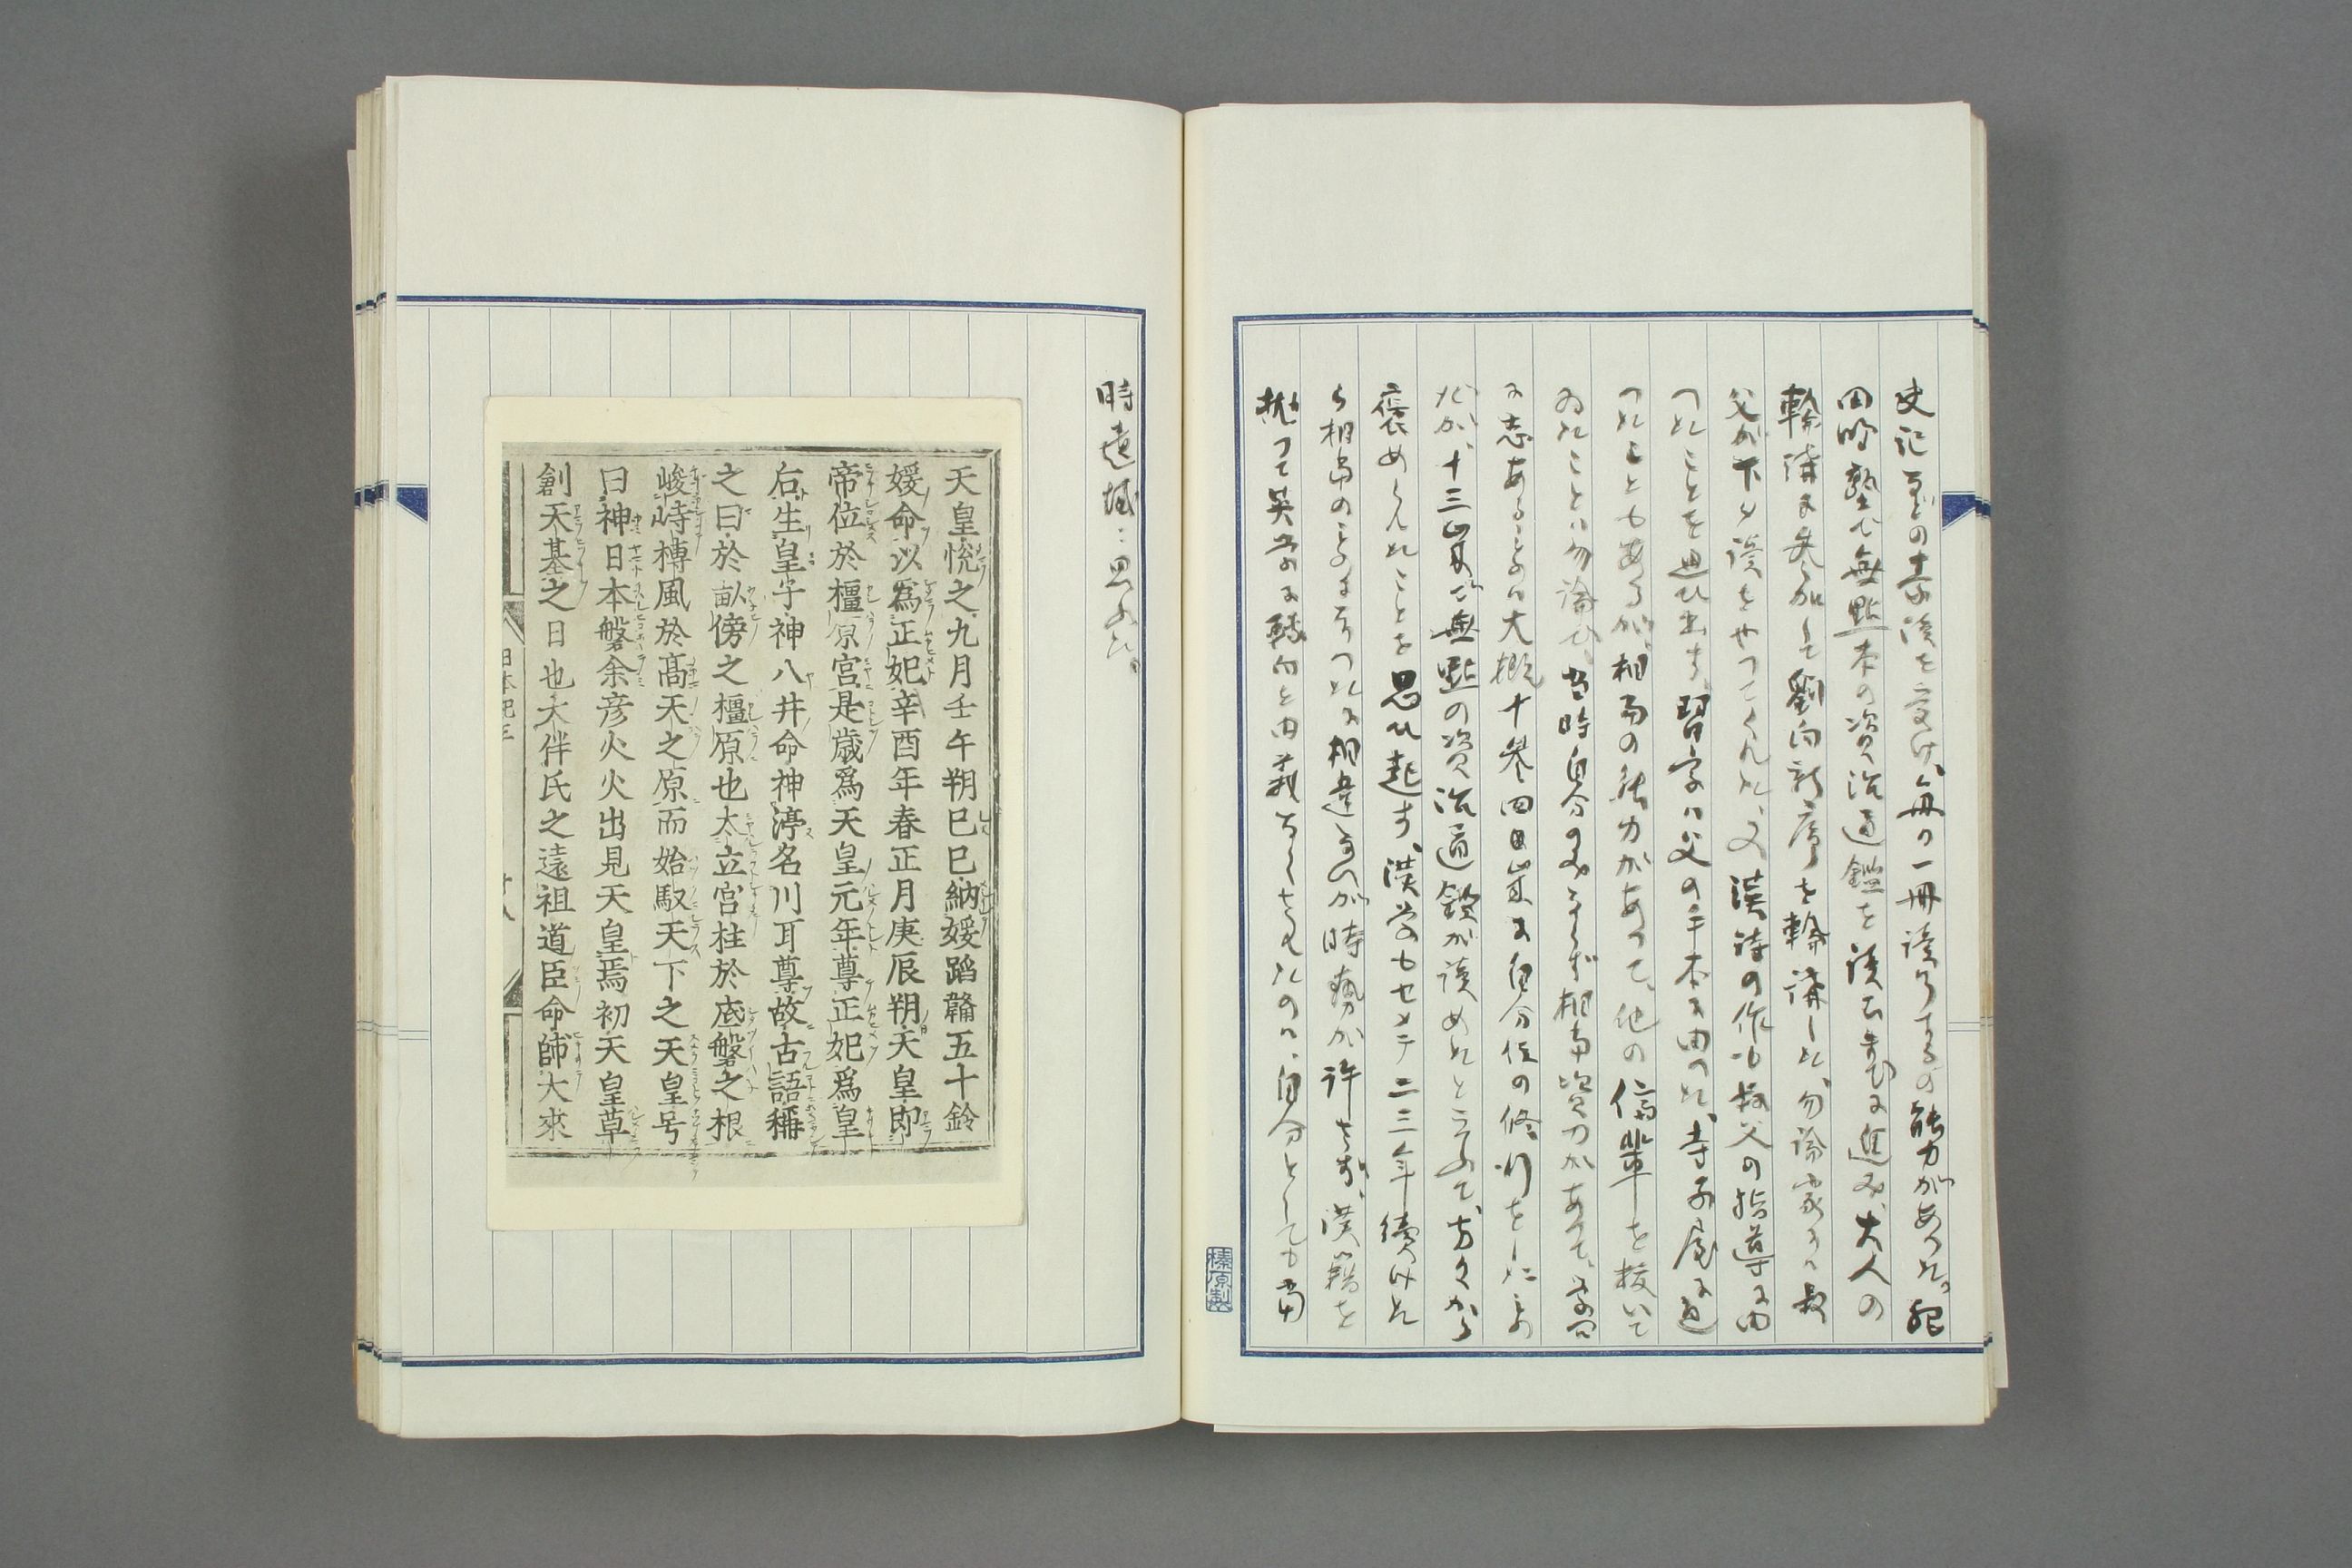 史記などの素讀を受け、毎日一冊讀了するの能力があつた。肥
田町塾で無點本の資治通鑑を讀むまでに進み、大人の
輪講に参加して劉向新序を輪講した、勿論家では叔
父が下タ讀をやつてくれた、又漢詩の作も叔父の指導に由
つたことを思ひ出す、習字は父の手本に由つた、寺子屋に通
つたこともあるが、相當の能力があつて、他の儕輩を抜いて
ゐたことは勿論也、当時自分のみならず相當資力があつて、学問
に志あるものは大概十参四五歳に自分位の修行をしたもの
だが、十三歳で無點の資治通鑑が讀めたと云ふて、方々から
褒めくれたことを思ひ起す、漢学もセメテ二三年續けた
ら相當のものになつたに相違ないが時勢が許さず、漢籍を
抛つて英学に轉向と由義なくされたのは、自分としても當
時遺憾に思ふた。
天皇悦之九月壬午朔己巳納媛蹈韛五十鈴
媛命以爲正妃辛酉年春正月庚辰朔天皇即
帝位於橿原宮是歳爲天皇元年尊正妃爲皇
右生皇子神八井命神渟名川耳尊故古語稱
之曰於畝傍之橿原也太立宮柱於底磐之根
峻峙榑風於髙天之原而始馭天下之天皇号
曰神日本磐余彦火火出見天皇焉初天皇草
創天基之日也大伴氏之遠祖道臣命師大來
日本紀三
廿八
榛原製